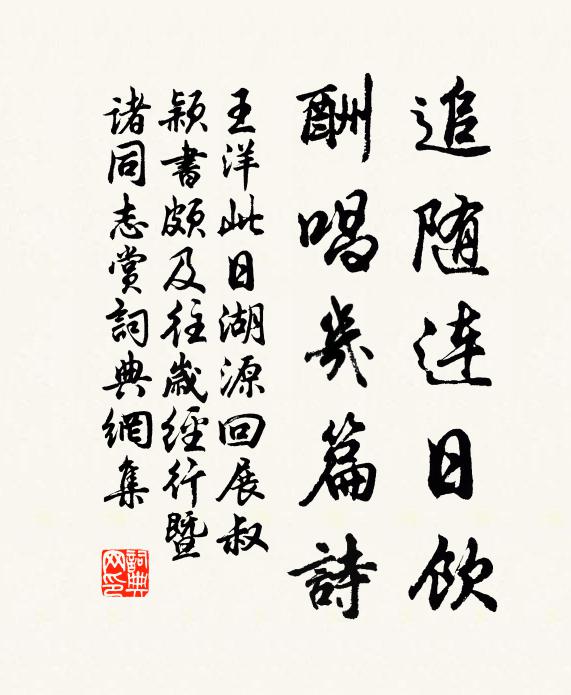 追随连日饮
酬唱几篇詩
王洋此日湖源回展叔
颖書颇及往歲經行暨
诸同志赏詞典網集
詞典网印